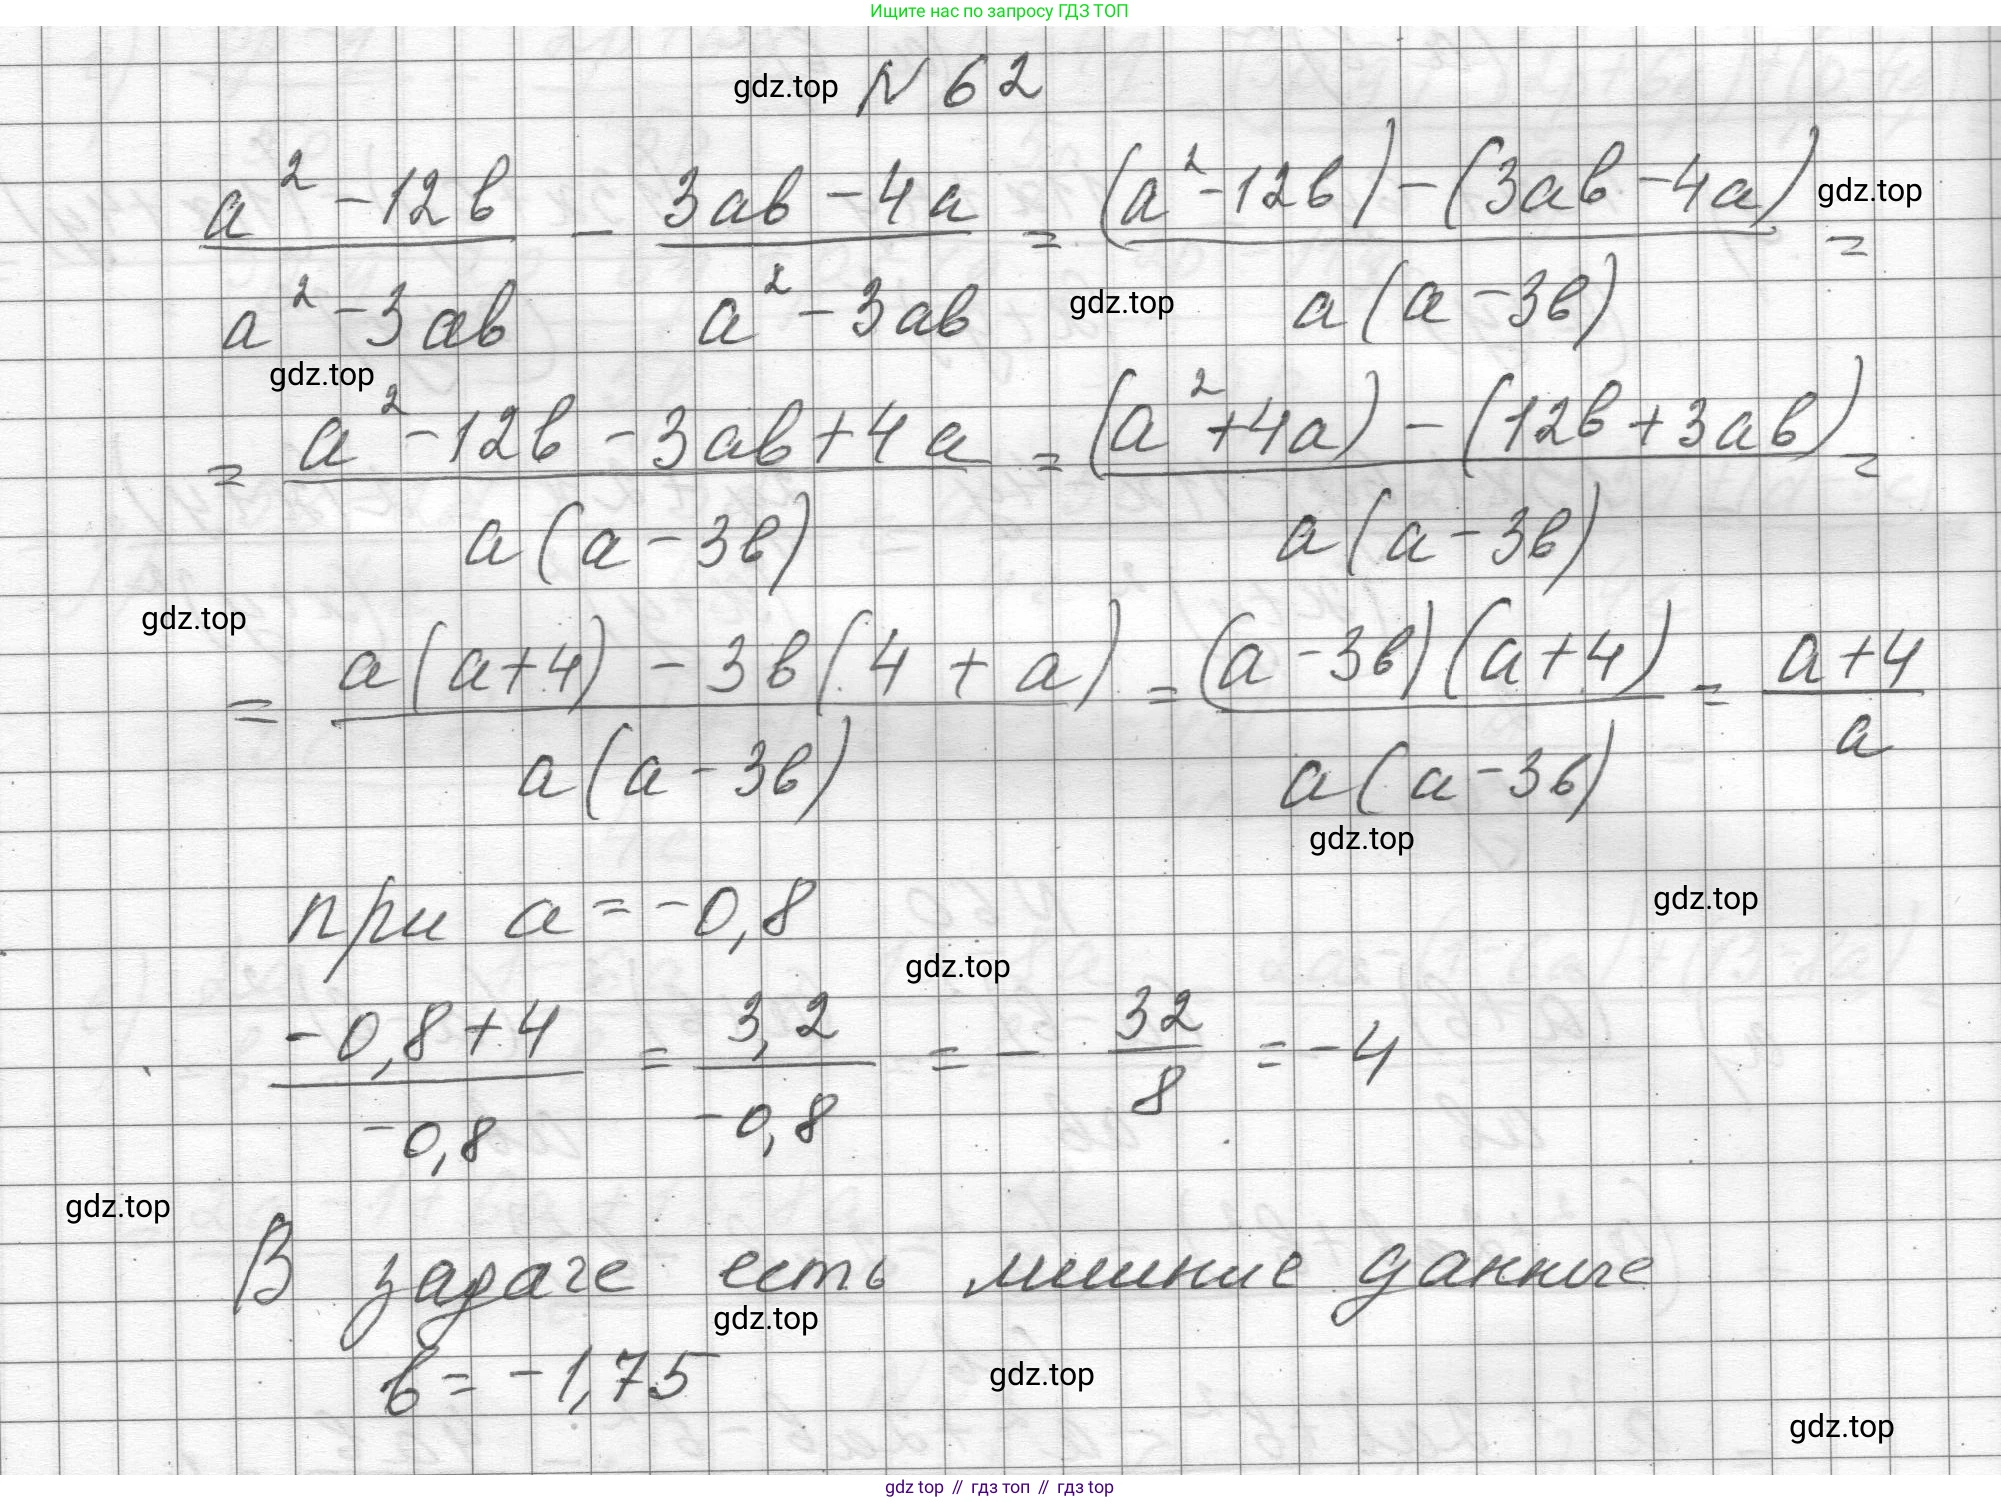 Ищите нас по запросу ГДЗ ТОП
gdz.top N 62
(a² - 12b)/(a² - 3ab) - (3ab - 4a)/(a² - 3ab) = ((a² - 12b) - (3ab - 4a))/(a(a - 3b)) = gdz.top
gdz.top
gdz.top
= (a² - 12b - 3ab + 4a)/(a(a - 3b)) = ((a² + 4a) - (12b + 3ab))/(a(a - 3b)) =
gdz.top
= (a(a + 4) - 3b(4 + a))/(a(a - 3b)) = ((a - 3b)(a + 4))/(a(a - 3b)) = (a + 4)/a
gdz.top
при a = -0,8
gdz.top
gdz.top
(-0,8 + 4)/(-0,8) = 3,2/(-0,8) = - 32/8 = -4
gdz.top
В задаче есть лишние данные
gdz.top
b = -1,75
gdz.top
gdz.top
gdz top // гдз топ // гдз top